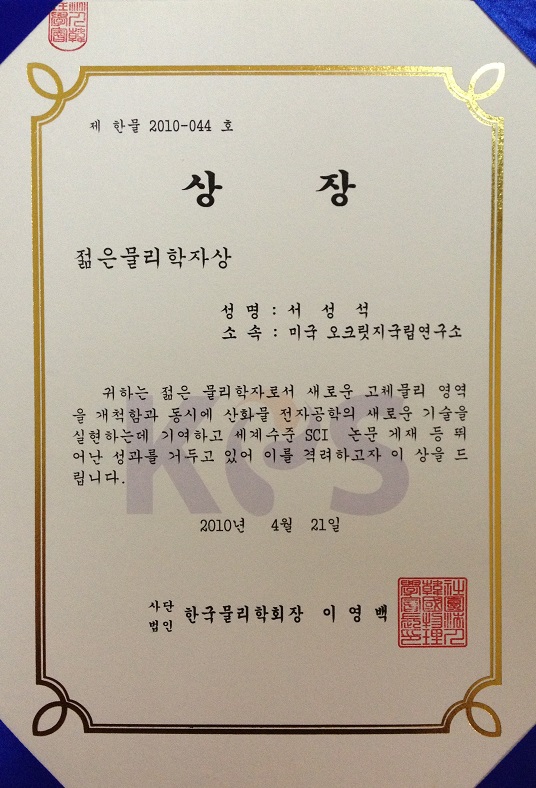 제 한물 2010-044 호
상 장
젊은물리학자상
성 명 : 서 성 석
소 속 : 미국 오크릿지국립연구소
귀하는 젊은 물리학자로서 새로운 고체물리 영역
을 개척함과 동시에 산화물 전자공학의 새로운 기술을
실현하는데 기여하고 세계수준 SCI 논문 게재 등 뛰
어난 성과를 거두고 있어 이를 격려하고자 이 상을 드
립니다.
KPS
2010년 4월 21일
사단
법인 한국물리학회장 이 영 백